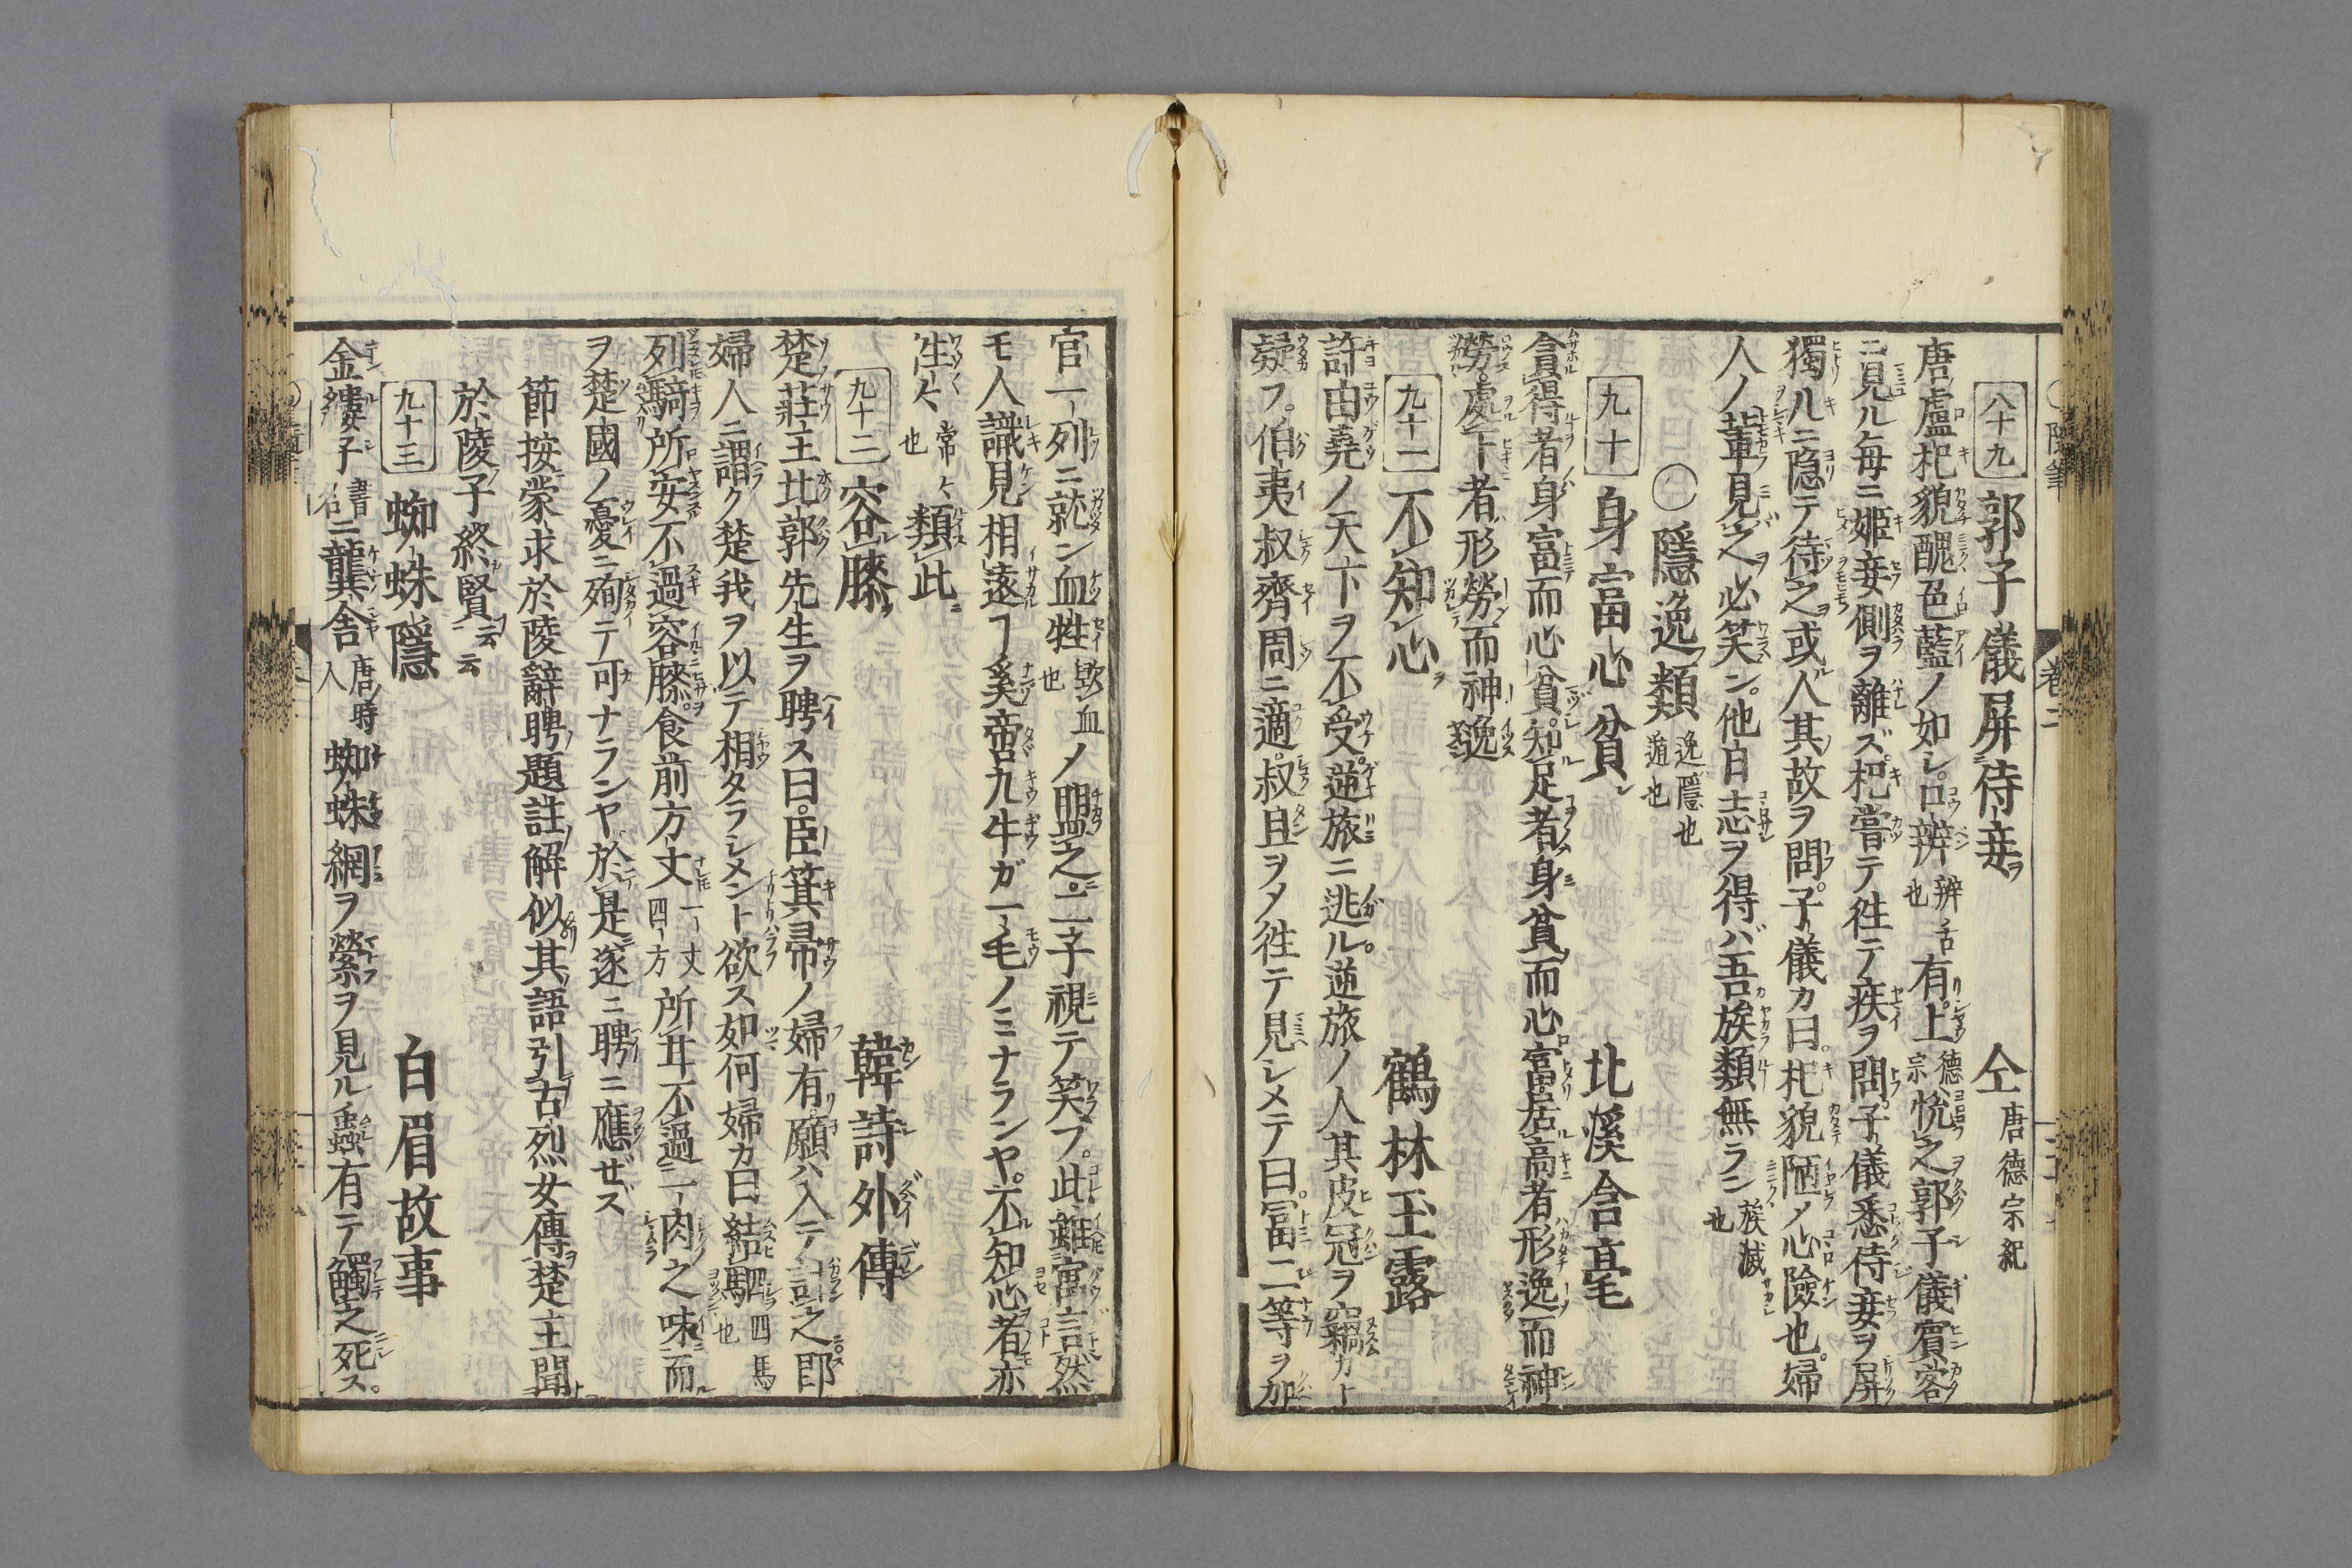 八十九 郭子儀屏侍妾ヲ 仝 唐德宗紀
唐ノ盧杞貌醜色藍ノ如シ口辨 辨舌也 有上 德宗 悅之郭子儀賓客
ニ見ル每ニ姬妾側ヲ離ズ杞嘗テ徃テ疾ヲ問フ子儀悉侍妾ヲ屏
獨ルニ隠テ待之或人其故ヲ問子儀カ曰杞貌陋メ心險也婦
人ノ輩見之必笑ン他日志ヲ得バ吾族類無ラン 族滅也
〇隱逸類 逸隱也遁也
九十 身富心貧 北溪含毫
貪得者身富而心貧知足者身貧而心富居高者形逸而神
勞處下者形勞而神逸
九十一 不知心 鶴林玉露
許由堯ノ天下ヲ不受逆旅ニ逃ル逆旅ノ人其皮冠ヲ竊カト
疑フ伯夷叔齊周ニ適叔且ヲメ徃テ見シメテ曰富二等ヲ加
官一列ニ就ン血牲 歃血也 ノ盟之二子視テ笑フ此雖寓言然
モ人識見相遠ヿ奚啻九牛ガ一毛ノミナランヤ不知心者亦
徃〻 常〻也 類此
九十二 容膝 韓詩外傳
楚莊王北郭先生ヲ聘ス曰臣箕帚ノ婦有願ハ入テ計之卽
婦人ニ謂ク楚我ヲ以テ相タラシメント欲ス如何婦カ曰結駟 四馬也
列騎所安不過容膝食前方丈 一丈四方 所甘不過一肉之味而
ヲ楚國ノ憂ニ殉テ可ナランヤ於是遂ニ聘ニ應ゼズ
節按蒙求於陵辭聘題註解似其語引古烈女傳楚王聞
於陵子終賢云云
九十三 蜘蛛隱 白眉故事
金縷子 書名 ニ龔舎 唐時人 蜘蛛網ヲ縈ヲ見ル蟲有テ觸之死ス